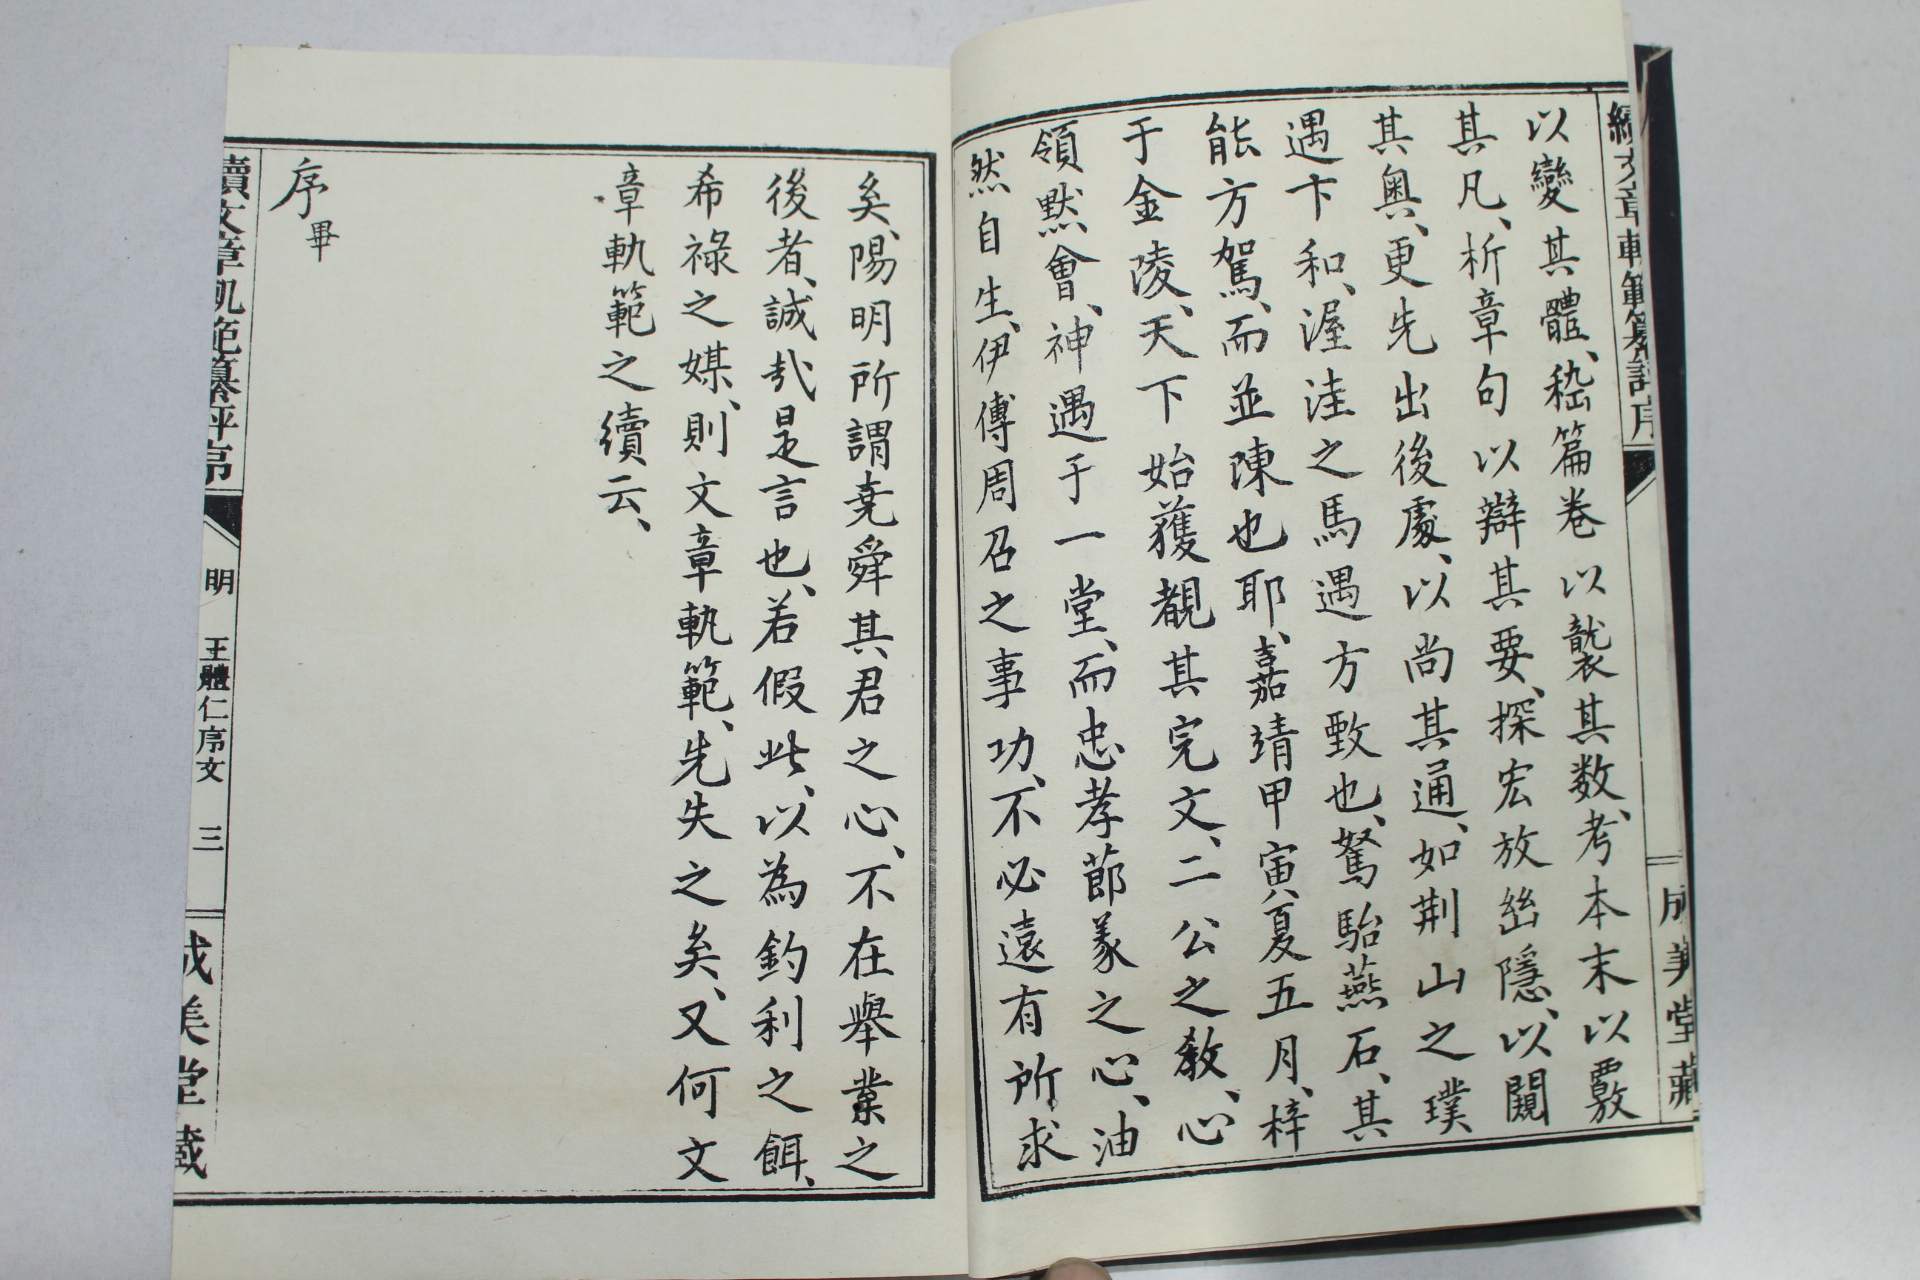 續文章軌範纂評序
成美堂藏
以變其體、嵇篇卷以襲其数、考本末以覈
其凡、析章句以辯其要、探宏放幽隱、以闚
其奥、更先出後處、以尚其通、如荆山之璞
遇卞和、渥洼之馬遇方臤也、駑駘燕石、其
能方駕、而並陳也耶、嘉靖甲寅夏五月、梓
于金陵、天下始獲覩其完文、二公之教、心
領默會、神遇于一堂、而忠孝節義之心、油
然自生、伊傅周召之事功、不必遠有所求
矣、陽明所謂尭舜其君之心、不在舉業之
後者、誠哉是言也、若假此、以為釣利之餌、
希祿之媒、則文章軌範、先失之矣、又何文
章軌範之續云、
序畢
續文章軌範纂評序
明 王體仁序文 三
成美堂藏